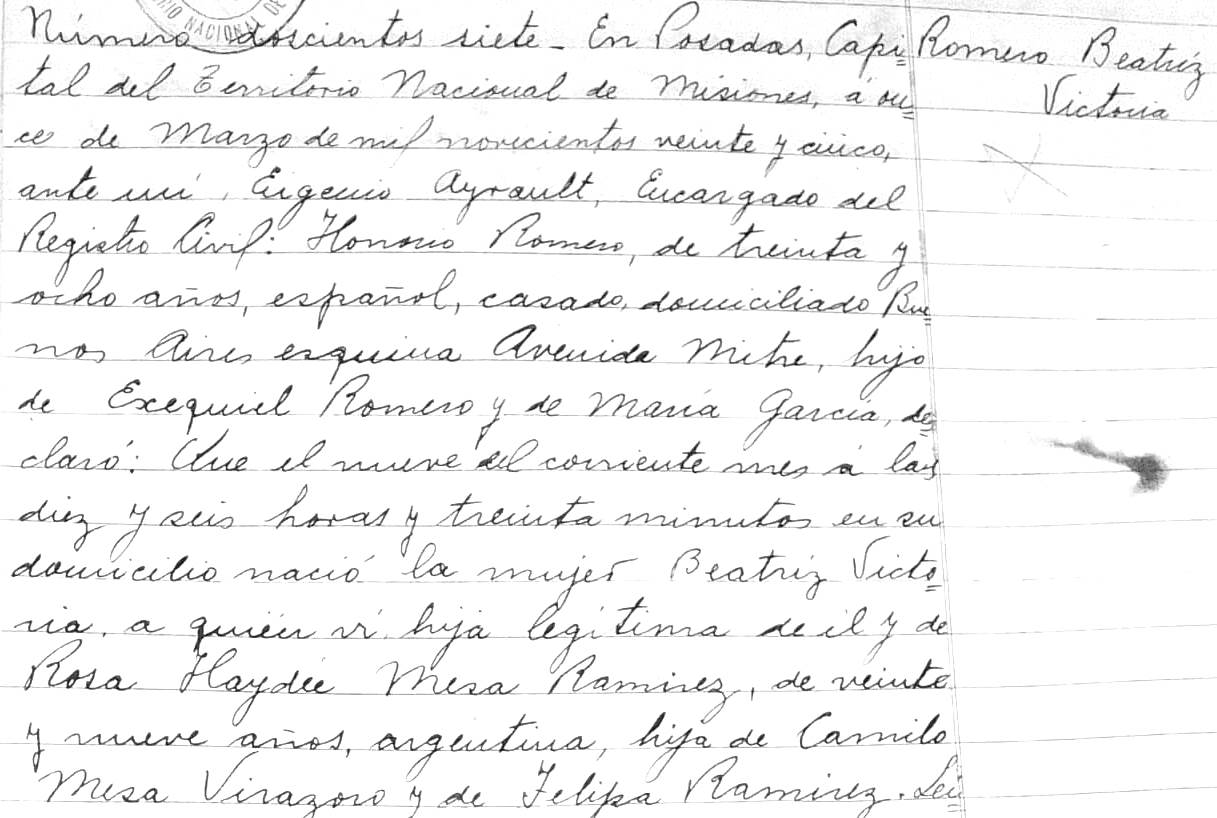 Número doscientos siete_ En Posadas, Capi=
tal del Territorio Nacional de Misiones, á on=
ce de Marzo de mil novecientos veinte y cinco,
ante mí, Eugenio Ayrault, Encargado del
Registro Civil: Honorio Romero, de treinta y
ocho años, español, casado, domiciliado Bue=
nos Aires esquina Avenida Mitre, hijo
de Exequiel Romero y de María García, de=
claró: Que el nueve del corriente mes á las
diez y seis horas y treinta minutos en su
domicilio nació la mujer Beatriz Victo=
ria, a quién ví, hija legítima de él y de
Rosa Haydée Mesa Ramirez, de veinte
y nueve años, argentina, hija de Camilo
Mesa Virazoro y de Felipa Ramirez. Lei=
Romero Beatríz
Victoria
NACIONAL DE